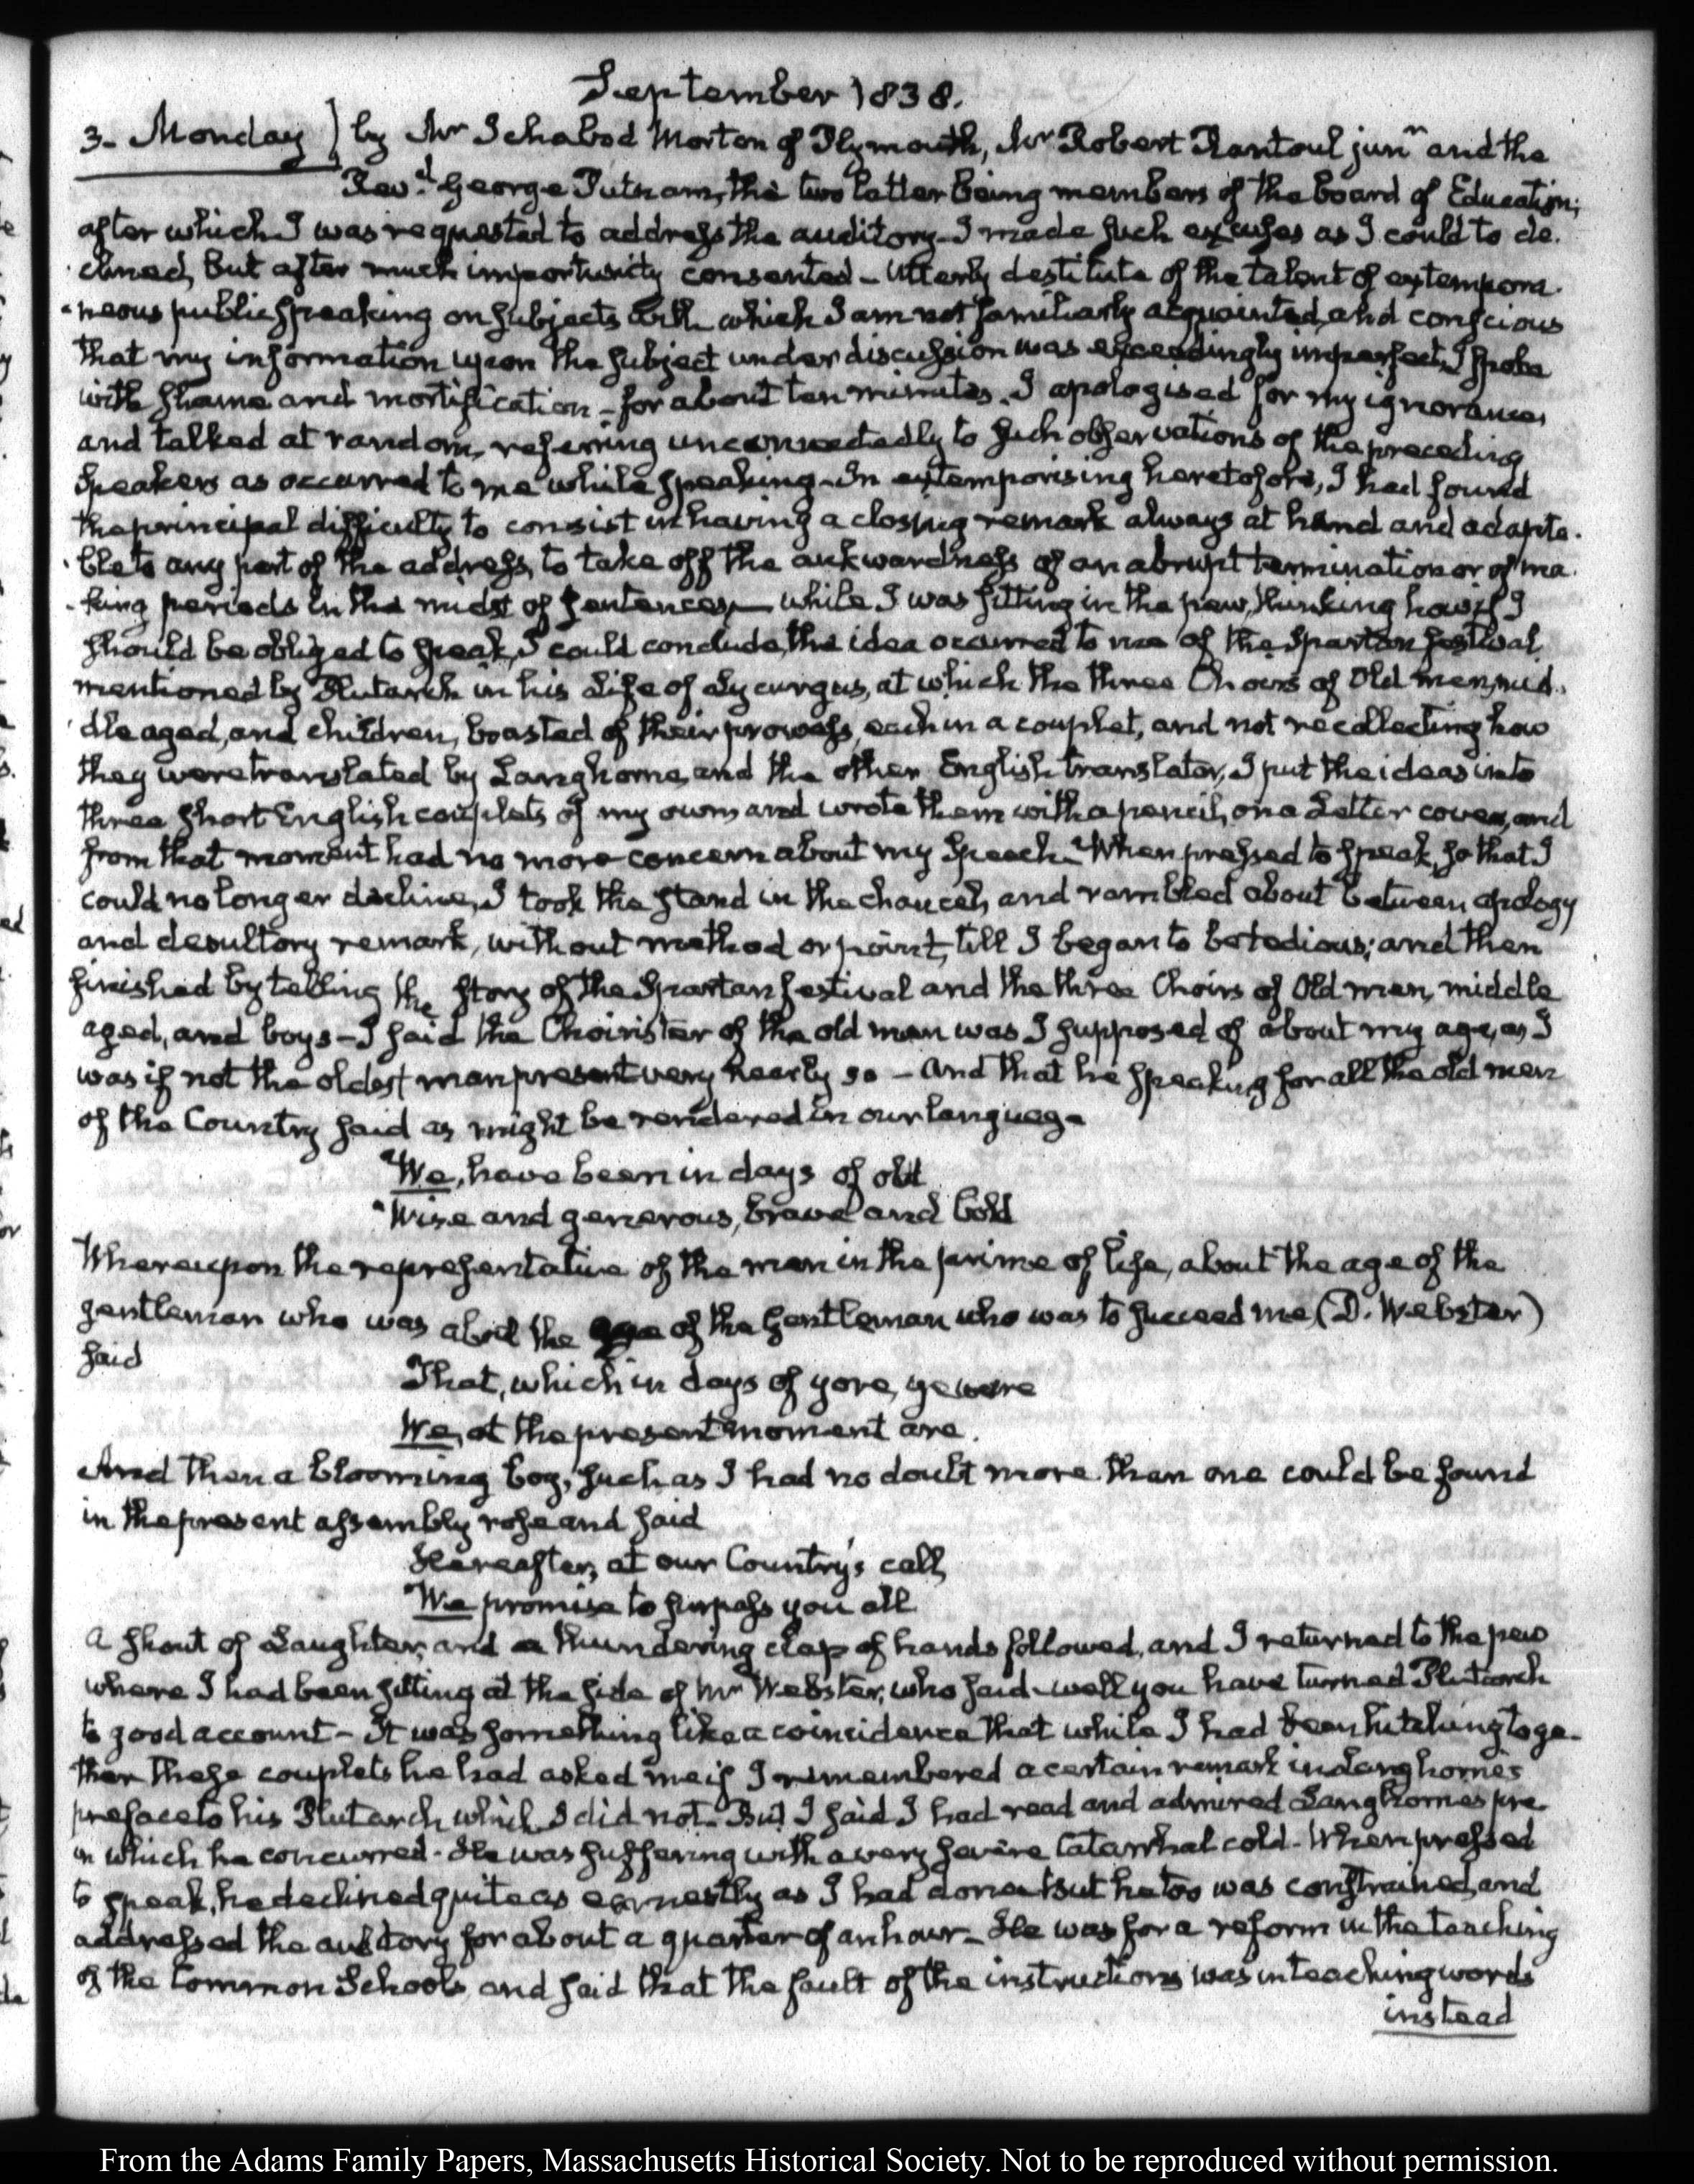 September 1838.
3. Monday) by Mr Ichabod Morton of Plymouth, Mr Robert Rantoul junr and the
Revd. George Putnam, the two latter being members of the board of Education;
after which I was requested to address the auditory. I made such excuses as I could to de-
clined, but after much importunity consented - Utterly destitute of the talent of extempora-
-neous public speaking on subjects with which I am not familiarly acquainted, and conscious
that my information upon the subject under discussion was exceedingly imperfect, I spoke
with shame and mortification - for about ten minutes. I apologised for my ignorance,
and talked at random, referring unconnectedly to such observations of the preceding
Speakers as occurred to me while speaking - In extemporising heretofore, I had found
the principal difficulty to consist in having a closing remark always at hand and adapta-
-ble to any part of the address, to take off the aukwardness of an abrupt termination or of ma-
-king periods in the midst of sentences - while I was sitting in the pew, thinking how if I
should be obliged to speak, I could conclude, the idea occurred to me of the Spartan festival
mentioned by Plutarch in his Life of Lycurgus, at which the three Choirs of Old men, mid-
-dle aged, and children, boasted of their prowess, each in a couplet, and not recollecting how
they were translated by Langhorne, and the other English translator, I put the ideas into
three short English couplets of my own, and wrote them with a pencil, on a Letter cover, and
from that moment had no more concern about my Speech. When pressed to speak, so that I
could no longer decline, I took the stand in the chancel, and rambled about between apology
and desultory remark, without method or point, till I began to be tedious; and then
finished by telling the story of the Spartan festival and the three Choirs of Old men, middle
aged, and boys - I said the Chorister of the old men was I supposed of about my age, as I
was if not the oldest man present very nearly so - And that he speaking for all the old men
of the Country said as might be rendered in our language
We, have been in days of old
Wise and generous, brave and bold
Whereupon the representative of the men in the prime of life, about the age of the
gentleman who was about the age of the Gentleman who was to succeed me (D. Webster)
said
That, which in days of yore, ye were
We, at the present moment are.
And then a blooming boy, such as I had no doubt more than one could be found
in the present assembly rose and said
Hereafter, at our Country's call,
We promise to surpass you all
A shout of Laughter, and a thundering clap of hands followed, and I returned to the pew
where I had been sitting at the side of Mr Webster, who said - well you have turned Plutarch
to good account - It was something like a coincidence that while I had been hitching toge-
ther these couplets he had asked me if I remembered a certain remark in Langhorne's
preface to his Plutarch which I did not. But I said I had read and admired Langhornes pre
in which he concurred - He was suffering with a very severe Catarrhal cold - When pressed
to speak, he declined quite as earnestly as I had done - But he too was constrained, and
addressed the auditory for about a quarter of an hour - He was for a reform in the teaching
of the Common Schools, and said that the fault of the instructions was in teaching words
instead
From the Adams Family Papers, Massachusetts Historical Society. Not to be reproduced without permission.